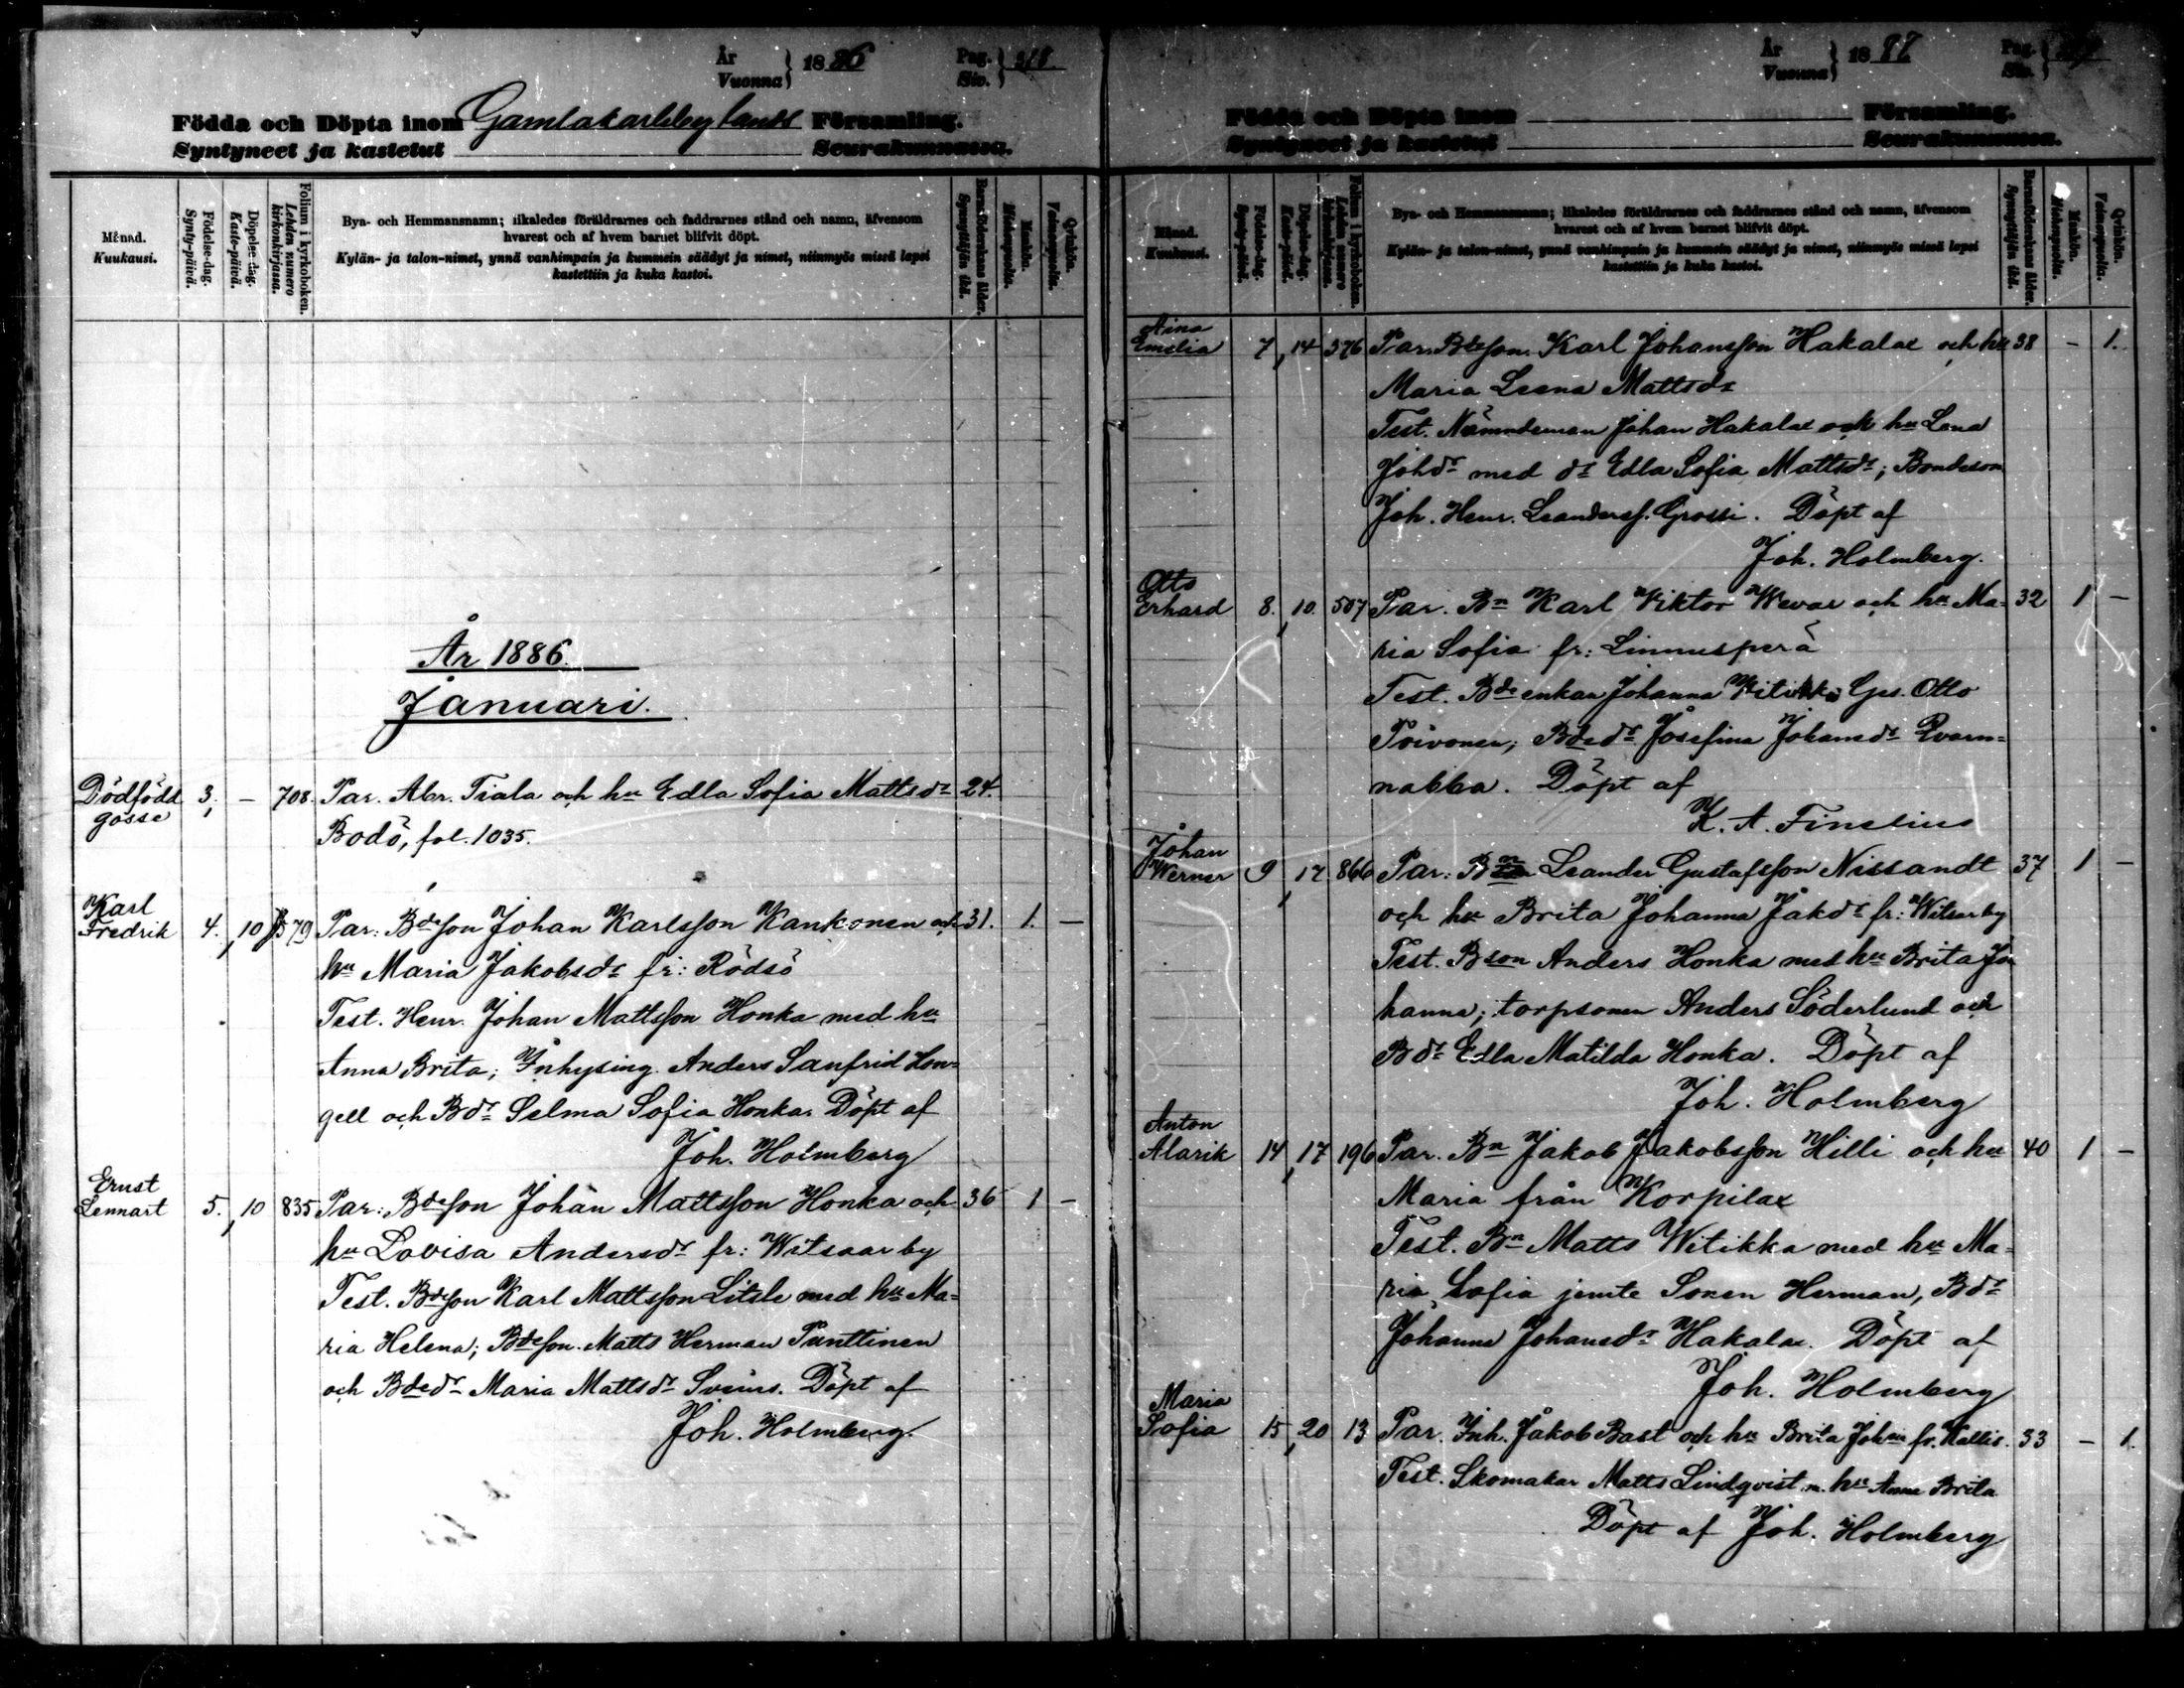 År
Vuonna } 1886 Pag.
Siv. } 318.
Födda och Döpta inom Gamlakarleby lands Församling.
Syntyneet ja kastetut Seurakunnassa.
Månad.
Kuukausi.
Födelse-dag.
Synty-päivä.
Döpelse-dag.
Kaste-päivä.
Folium i kyrkoboken.
Lehden numero kirkonkirjassa.
Bya- och Hemmansnamn; likaledes föräldrarnes och faddrarnes stånd och namn, äfvensom
hvarest och af hvem barnet blifvit döpt.
Kylän- ja talon-nimet, ynnä vanhimpain ja kummein säädyt ja nimet, niinmyös missä lapsi
kastettiin ja kuka kastoi.
Barnaföderskans ålder.
Synnyttäjän ikä.
Mankön.
Miehenpuolta.
Qvinkön.
Vaimonpuolta.
År 1886.
Januari.
Dödfödd 3, – 708. Par. Abr. Tiala och hu Edla Sofia Mattsdr 24.
gosse
Bodö, fol. 1035.
Karl
Fredrik 4. 10 579 Par: Bdeson Johan Karlsson Kankonen och 31. 1. –
hu Maria Jakobsdr fr: Rödsö
Test. Henr. Johan Mattsson Honka med hu
Anna Brita; Inhysing Anders Sanfrid Hon-
gell och Bdr Selma Sofia Honka. Döpt af
Joh. Holmberg
Ernst
Lennart 5. 10 835 Par: Bdeson Johan Mattsson Honka och 36 1 –
hu Lovisa Andersdr fr: Witsaar by
Test. Bdeson Karl Mattsson Litsle med hu Ma-
ria Helena; Bdeson Matts Herman Punttinen
och Bdedr Maria Mattsdr Döpt af
Joh. Holmberg.
År
Vuonna } 1887 Pag.
Siv. }
Födda och Döpta inom Församling.
Syntyneet ja kastetut Seurakunnassa.
Månad.
Kuukausi.
Födelse-dag.
Synty-päivä.
Döpelse-dag.
Kaste-päivä.
Folium i kyrkoboken.
Lehden numero kirkonkirjassa.
Bya- och Hemmansnamn; likaledes föräldrarnes och faddrarnes stånd och namn, äfvensom
hvarest och af hvem barnet blifvit döpt.
Kylän- ja talon-nimet, ynnä vanhimpain ja kummein säädyt ja nimet, niinmyös missä lapsi
kastettiin ja kuka kastoi.
Barnaföderskans ålder.
Synnyttäjän ikä.
Mankön.
Miehenpuolta.
Qvinkön.
Vaimonpuolta.
Aina
Emelia 7, 14 376 Par. Bdeson Karl Johansson Hakalax och hu 38 – 1.
Maria Leena Mattsdr
Test. Nämndeman Johan Hakalax och hu Lena
Johdr med dr Edla Sofia Mattsdr; Bondeson
Joh. Henr. Leanderss. Grossi. Döpt af
Joh. Holmberg.
Otto
Erhard 8. 10. 507 Par. Bn Karl Viktor Wevar och hu Ma- 32 1 –
ria Sofia fr: Linnusperä
Test. Bde enkan Johanna Witikka Ges. Otto
Toivonen; Bdedr Josefina Johansdr Qvarn-
nabba. Döpt af
K. A. Finelius
Johan
Werner 9, 17 866 Par: Bn Leander Gustafsson Nissandt 37 1 –
och hu Brita Johanna Jakdr fr: Witsar by
Test. Bson Anders Honka med hu Brita Jo
hanna; torpsonen Anders Söderlund och
Bdr Edla Matilda Honka. Döpt af
Joh. Holmberg
Anton
Alarik 14, 17 196 Par. Bn Jakob Jakobsson Hilli och hu 40 1 –
Maria från Korpilax
Test. Bn Matts Witikka med hu Ma-
ria Sofia jemte Sonen Herman, Bdr
Johanna Johansdr Hakalax. Döpt af
Joh. Holmberg
Maria
Sofia 15, 20 13 Par. Inh. Jakob Bast och hu Brita fr. Kallis. 33 – 1.
Test. Skomakar Matts Lindqvist m. hu Anna Brita
Döpt af Joh. Holmberg